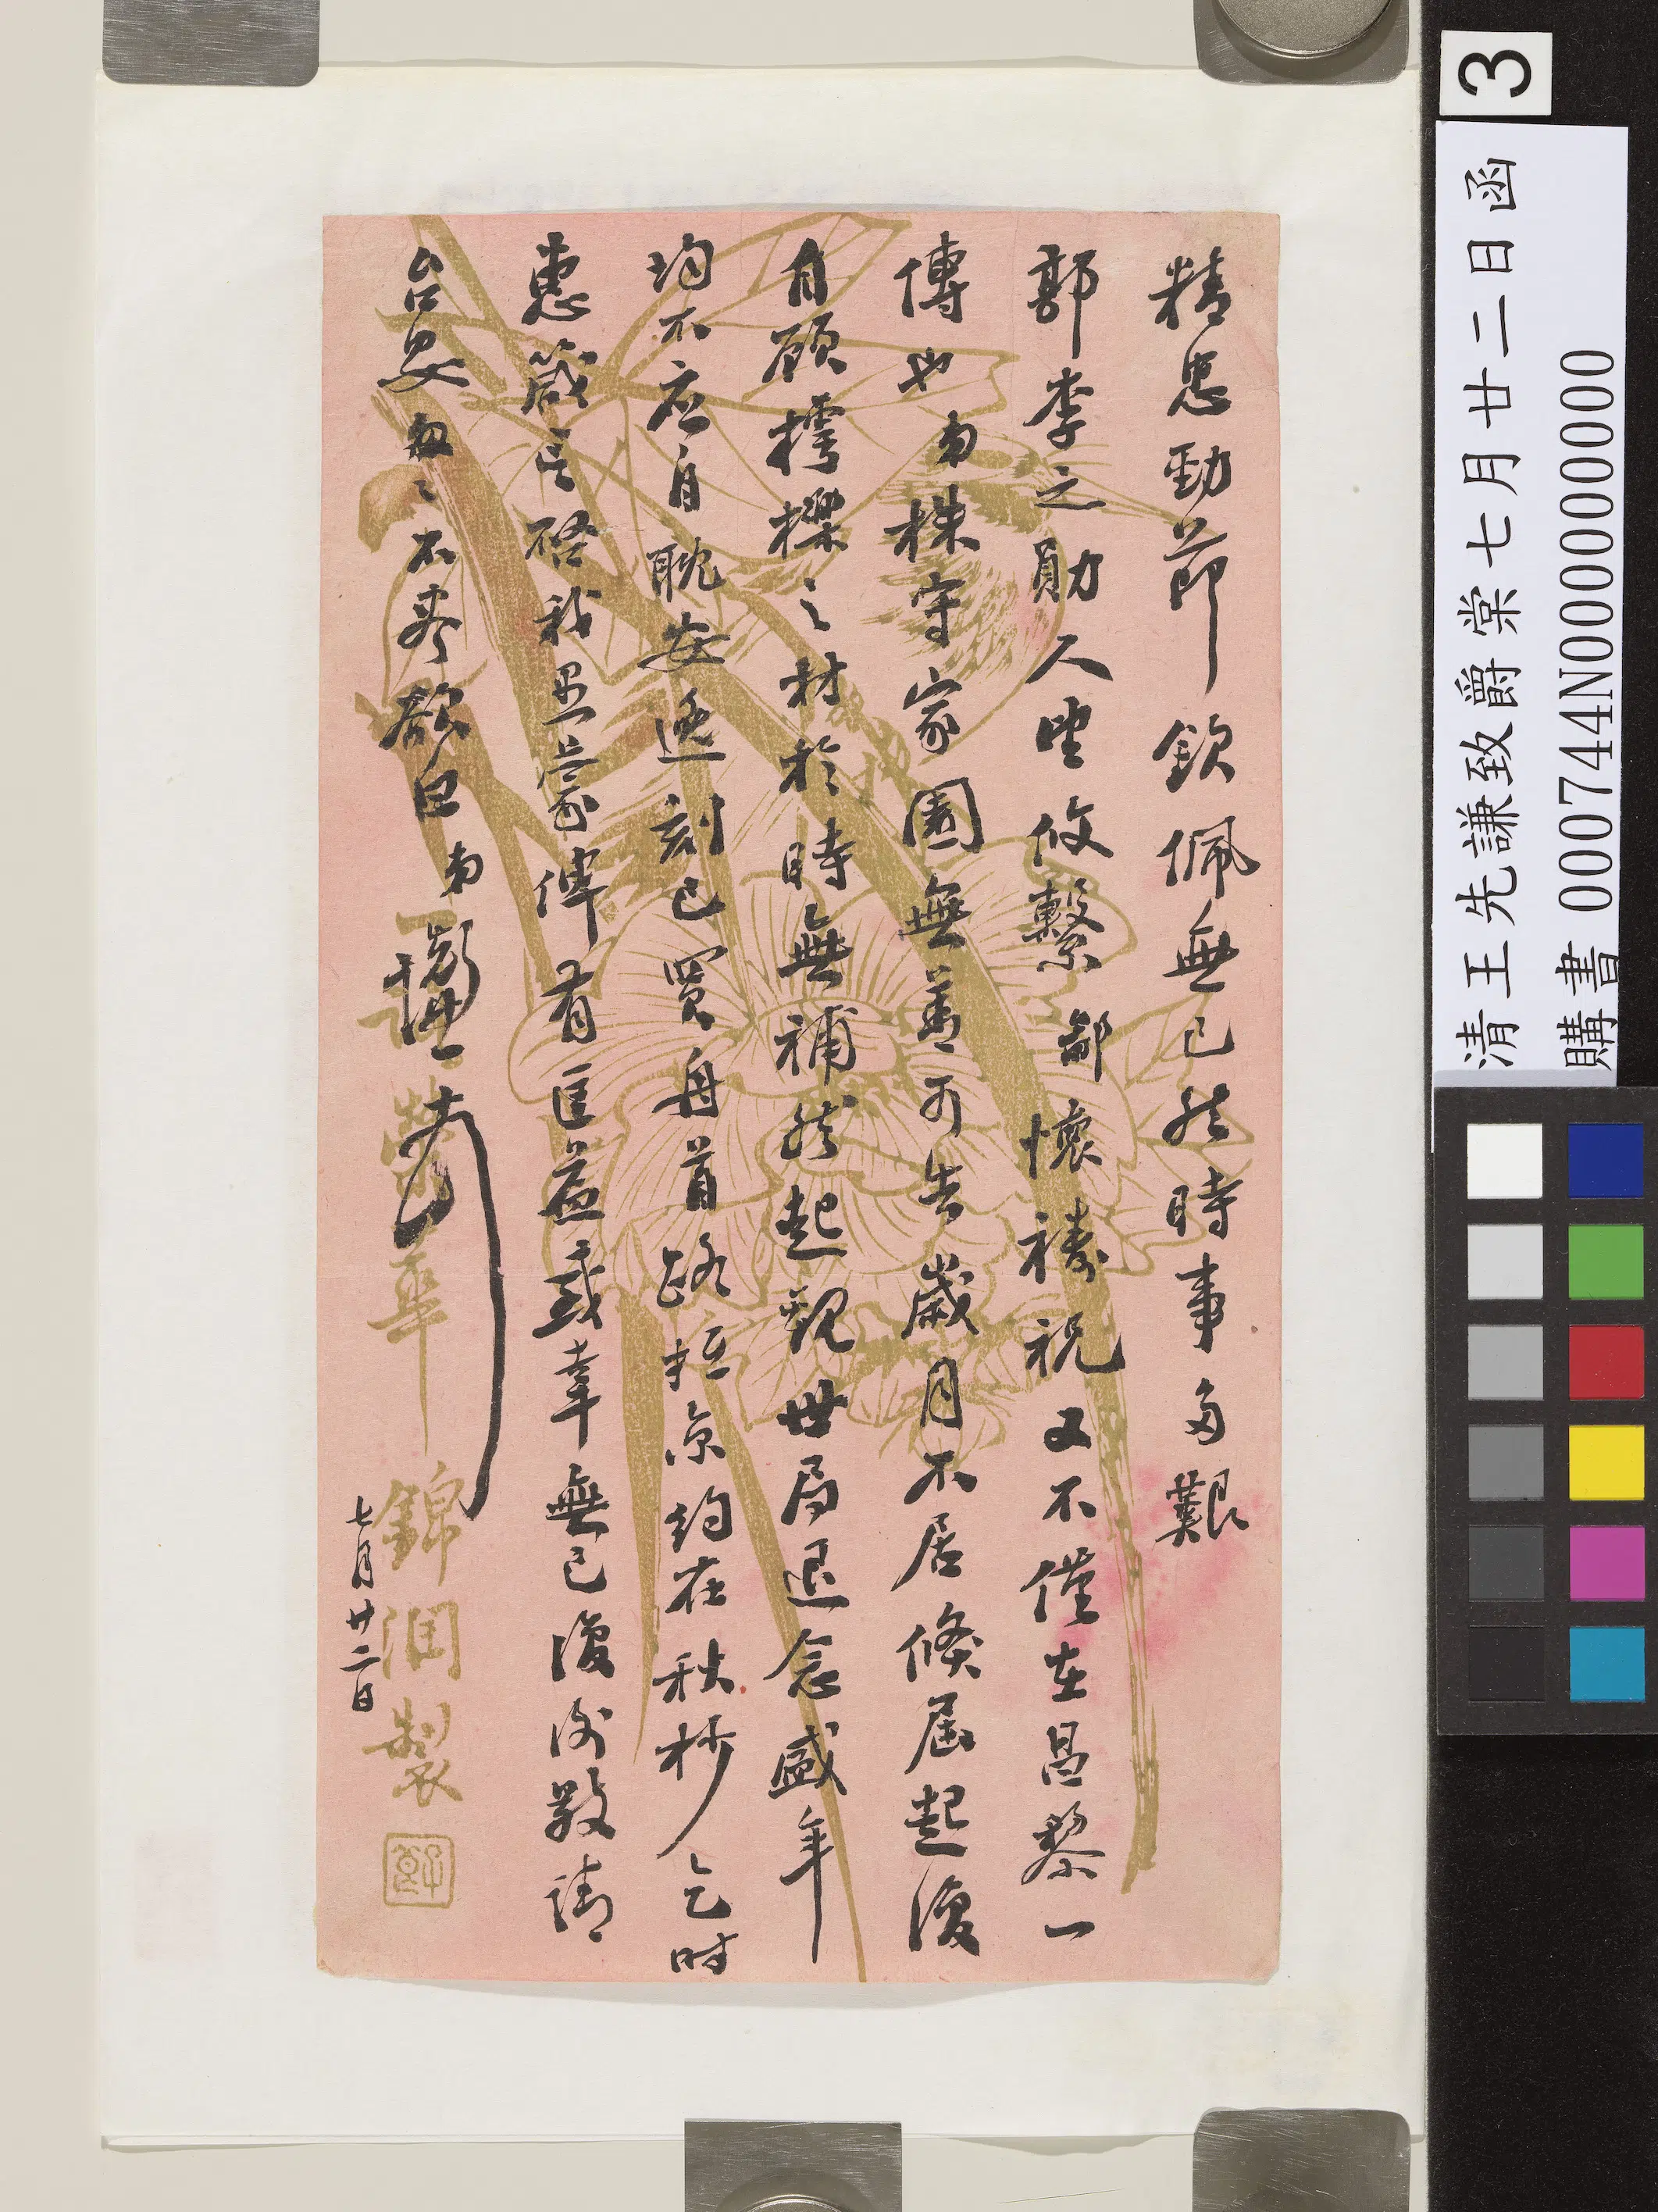 精忠勁節欽佩無已然時事多艱
郭李之勛人望攸繫鄙懷禱祝又不僅在昌黎一
傳也弟株守家園無善可告歲月不居倐屆起復
自顧樗櫟之材於時無補然起觀世局退念盛年
均不應自耽安逸刻已買舟首路抵京約在秋杪乞時
惠箴言啓我愚蒙俾有匡益感幸無已復詢敬請
台安匆匆不盡欲言弟先謙頓首
七月廿二日
錦潤製
3
清王先謙致爵棠七月廿二日函
購書 000744N000000000